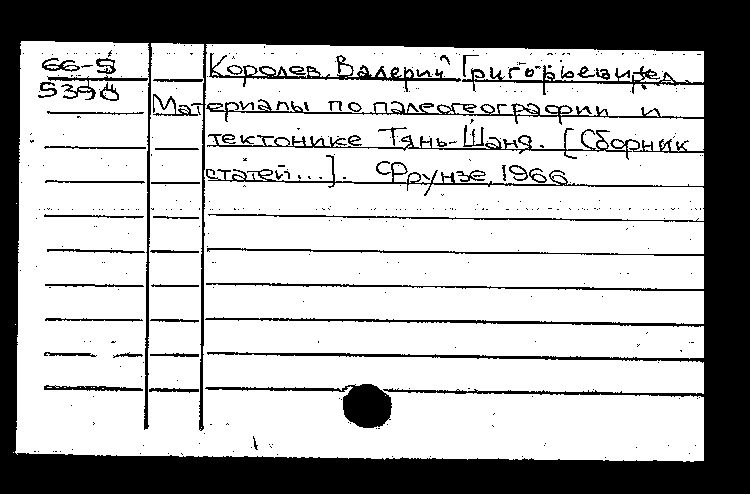 66-5 Королев, Валерий Григорьевич, ред.
5398 Материалы по палеогеографии и
тектонике Тянь-Шаня. [Сборник
статей...]. Фрунзе, 1966